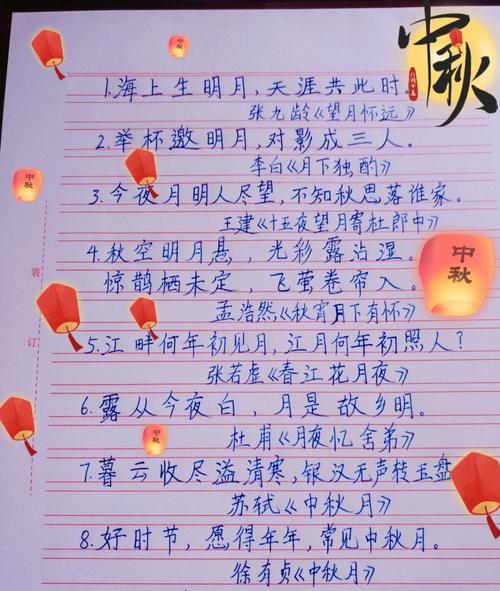 中秋
八月十五
1.海上生明月,天涯共此时。
张九龄《望月怀远》
2.举杯邀明月,对影成三人。
李白《月下独酌》
中秋
3.今夜月明人尽望,不知秋思落谁家。
王建《十五夜望月寄杜郎中》
4.秋空明月悬,光彩露沾湿。
中秋
惊鹊栖未定,飞萤卷帘入。
装
孟浩然《秋宵月下有怀》
订
5.江畔何年初见月,江月何年初照人?
张若虚《春江花月夜》
6.露从今夜白,月是故乡明。
中秋
杜甫《月夜忆舍弟》
7.暮云收尽溢清寒,银汉无声转玉盘
苏轼《中秋月》
8.好时节,愿得年年,常见中秋月。
徐有贞《中秋月》